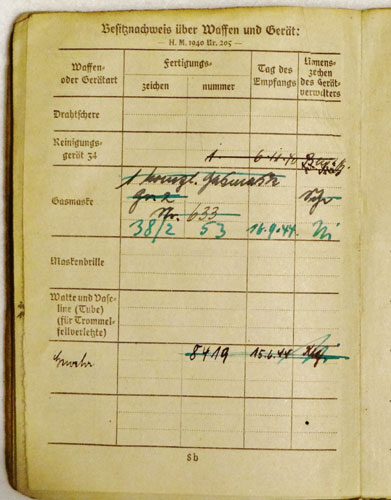 Besitznachweis über Waffen und Gerät:
— H. M. 1940 Nr. 205 —
Waffen- oder Geräteart
Fertigungs-
zeichen
nummer
Tag des Empfangs
Namens- zeichen des Gerät- verwalters
Drahtschere
Reinigungs-
gerät 34 1 6.11.40
1 kompl. Gasmaske
Gr. 2
Gasmaske
Nr. 633
38/2 53 16.9.44
Maskenbrille
Watte und Vase-
line (Tube)
(für Trommel-
fellverletzte)
Gewehr 8419 15.6.44
8b